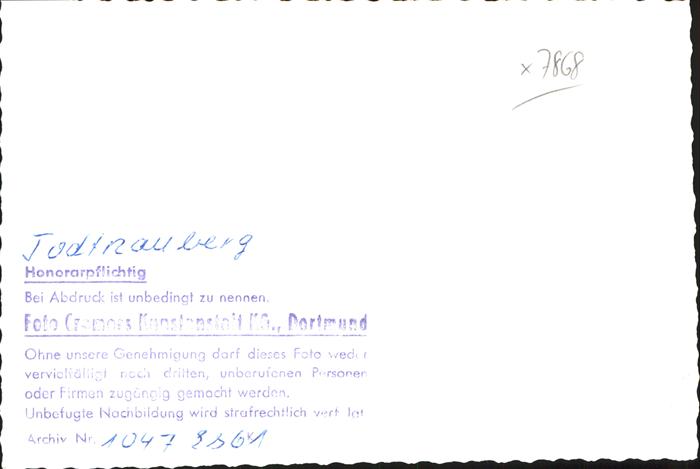 x 7868
Todtnauberg
Honorarpflichtig
Bei Abdruck ist unbedingt zu nennen.
Foto Cramers Kunstanstalt KG., Dortmund
Ohne unsere Genehmigung darf dieses Foto weder
vervielfältigt noch dritten, unberufenen Personen
oder Firmen zugängig gemacht werden.
Unbefugte Nachbildung wird strafrechtlich verf
Archiv Nr. 1047